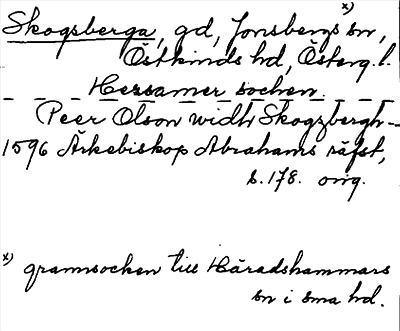 Skogsberga, gd, Jonsbergs x) sn,
Östkinds hd, Österg. l.
Hersamer sochen.
Peer Olson widh Skogzbergh
1596 Ärkebiskop Abrahams räfst,
s. 178. orig.
x) grannsocken till Häradshammars
sn i sma hd.